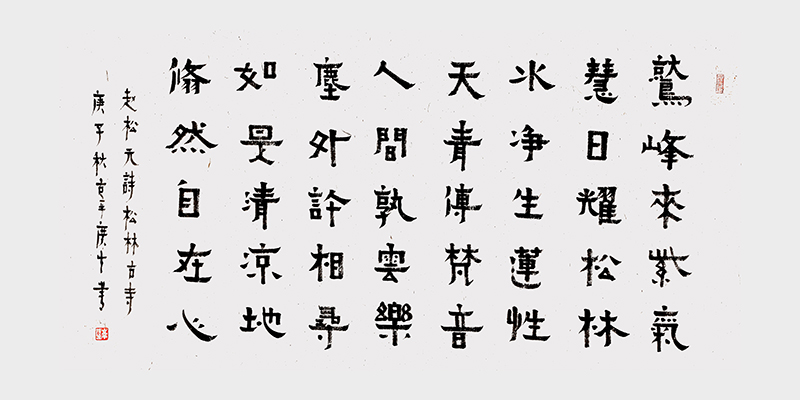 鷲峰來紫氣
慧日耀松林
水净生蓮性
天青傳梵音
人間孰雲樂
塵外許相尋
如是清涼地
翛然自在心
赵松元詩松林古寺
庚子秋書